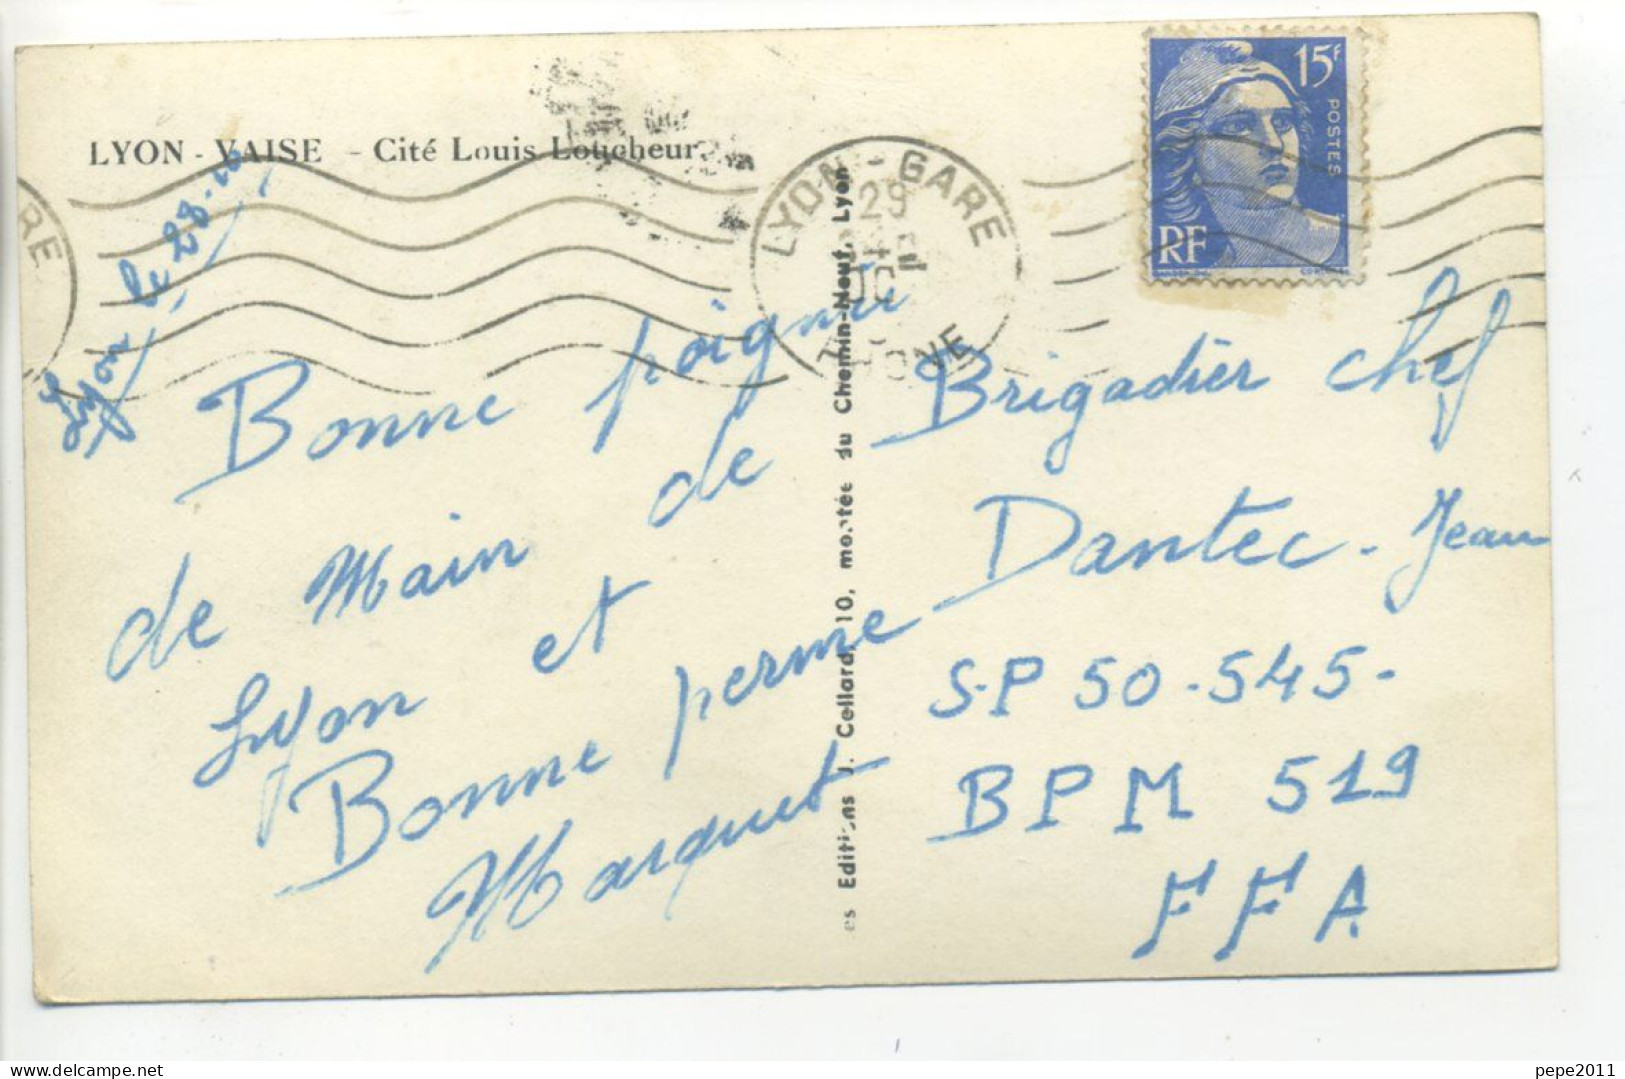 LYON - VAISE - Cité Louis Loucheur
Lyon le 28-10
Bonne poignée
de Main de
Lyon et
Bonne perme
Marquet
Editions J. Cellard, 10, montée du Chemin-Neuf, Lyon
LYON - GARE
29
OC
RHONE
RE
15F
POSTES
RF
Brigadier chef
Dantec - Jean
S.P 50-545-
BPM 519
FFA
pepe2011